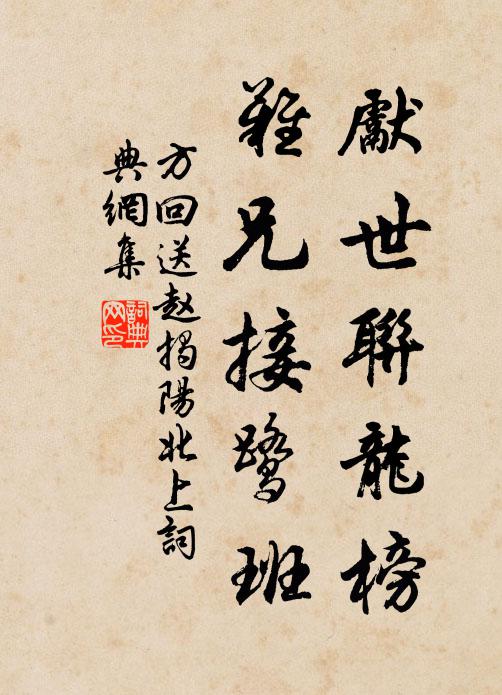 獻世聯龍榜
難兄接鷺班
方回送趙揭陽北上詞
典網集
詞典
网印